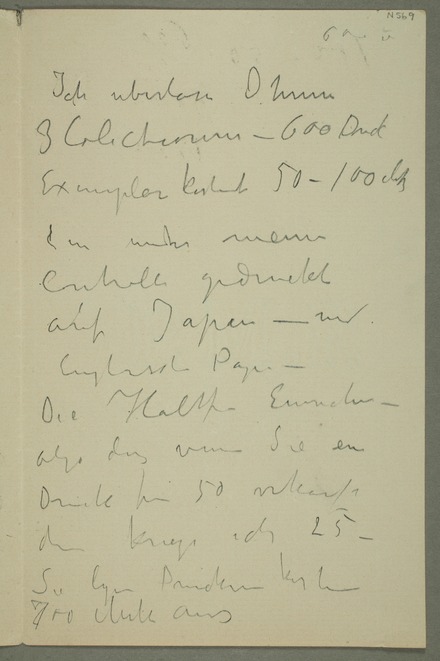 N569
Ich überlasse Ihnen
3 Collectionen – 600 Druck
Exemplar kostet 50 – 100 Mk
unter meine
Controlle gedruckt
auf Japan – und
Englisch Papir –
Die Hälfte Einnahme –
also das wenn Sie en
Druck für 50 verkauft
dann kriege ich 25 –
Sie Druckern kosten
700 Mark aus